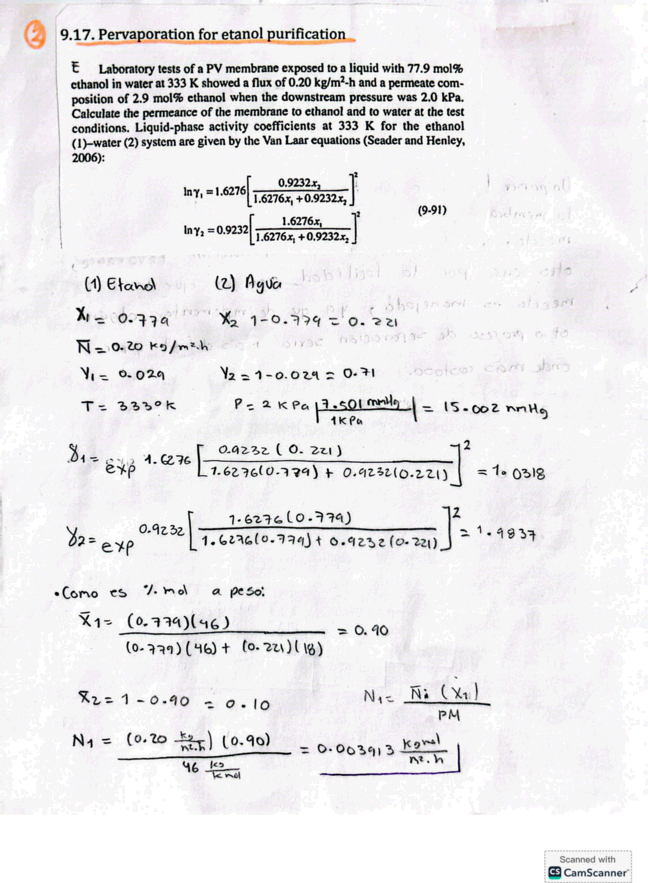 2
9.17. Pervaporation for etanol purification
E Laboratory tests of a PV membrane exposed to a liquid with 77.9 mol%
ethanol in water at 333 K showed a flux of 0.20 kg/m²-h and a permeate com-
position of 2.9 mol% ethanol when the downstream pressure was 2.0 kPa.
Calculate the permeance of the membrane to ethanol and to water at the test
conditions. Liquid-phase activity coefficients at 333 K for the ethanol
(1)–water (2) system are given by the Van Laar equations (Seader and Henley,
2006):
ln γ₁ = 1.6276 [ 0.9232x₂ / 1.6276x₁ + 0.9232x₂ ]²
(9-91)
ln γ₂ = 0.9232 [ 1.6276x₁ / 1.6276x₁ + 0.9232x₂ ]²
(1) Etanol (2) Agua
X₁ = 0.779 X₂ 1-0.779 = 0.221
N̄ = 0.20 kg/m².h
Y₁ = 0.029 Y₂ = 1-0.029 = 0.71
T = 333°K P = 2 KPa | 7.501 mmHg / 1 KPa | = 15.002 mmHg
γ₁ = exp 1.6276 [ 0.9232 (0.221) / 1.6276(0.779) + 0.9232(0.221) ]² = 1.0318
γ₂ = exp 0.9232 [ 1.6276(0.779) / 1.6276(0.779) + 0.9232(0.221) ]² = 1.9837
• Como es % mol a peso:
X̄1 = (0.779)(46) / (0.779)(46) + (0.221)(18) = 0.90
X̄2 = 1 - 0.90 = 0.10 N₁ = N̄i (X₁) / PM
N₁ = (0.20 kg/m².h) (0.90) / 46 kg/kmol = 0.003913 kgmol/m².h
Scanned with
CS CamScanner